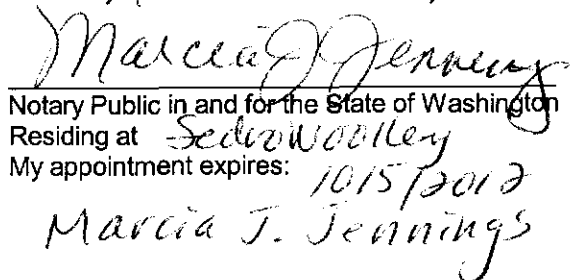 Marcia J Jennings
Notary Public in and for the State of Washington
Residing at Sedro Woolley
My appointment expires: 10/5/2012
Marcia J. Jennings